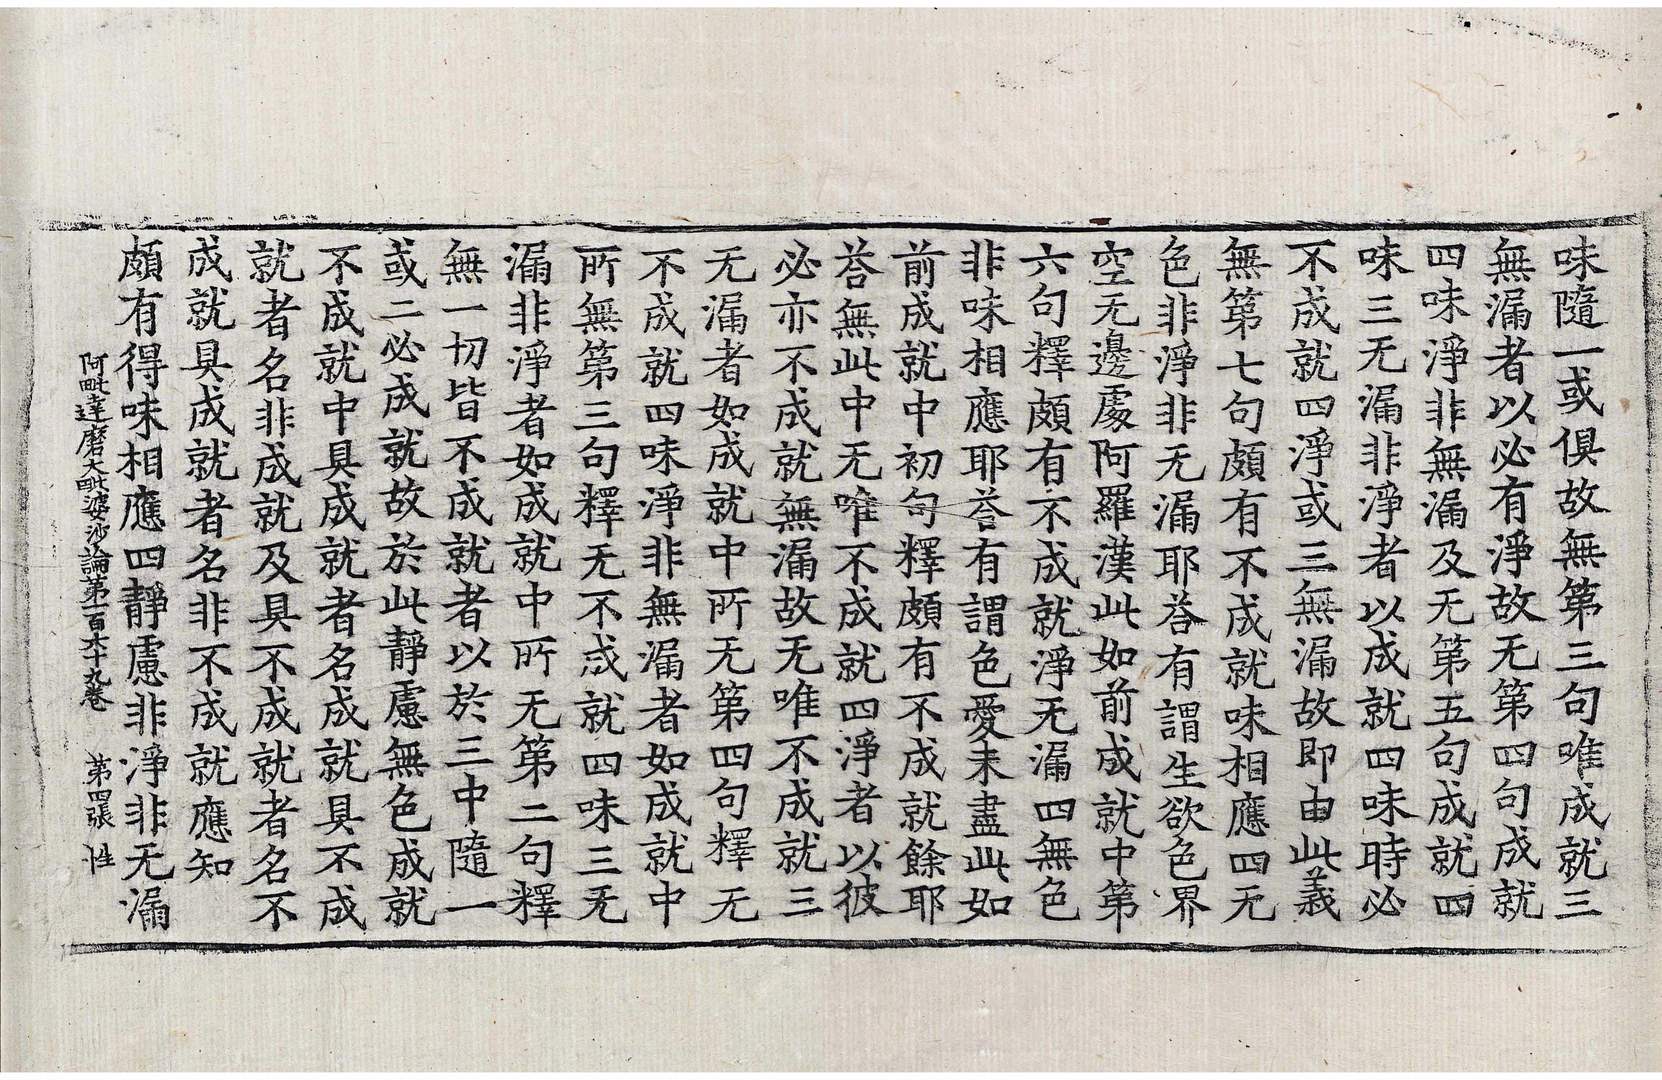 味隨一或俱故無第三句唯成就三
無漏者以必有淨故无第四句成就
四味淨非無漏及无第五句成就四
味三无漏非淨者以成就四味時必
不成就四淨或三無漏故即由此義
無第七句頗有不成就味相應四无
色非淨非无漏耶荅有謂生欲色界
空无邊處阿羅漢此如前成就中第
六句釋頗有不成就淨无漏四無色
非味相應耶荅有謂色愛未盡此如
前成就中初句釋頗有不成就餘耶
荅無此中无唯不成就四淨者以彼
必亦不成就無漏故无唯不成就三
无漏者如成就中所无第四句釋无
不成就四味淨非無漏者如成就中
所無第三句釋无不成就四味三无
漏非淨者如成就中所无第二句釋
無一切皆不成就者以於三中隨一
或二必成就故於此靜慮無色成就
不成就中具成就者名成就具不成
就者名非成就及具不成就者名不
成就具成就者名非不成就應知
頗有得味相應四靜慮非淨非无漏
阿毗達磨大毗婆沙論第一百六十九卷　第四張　性